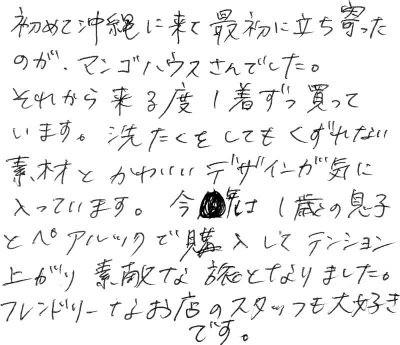 初めて沖縄に来て最初に立ち寄った
のが、マンゴハウスさんでした。
それから来る度1着ずつ買って
います。洗たくをしてもくずれない
素材とかわいいデザインが気に
入っています。今年は1歳の息子
とペアルックで購入してテンション
上がり素敵な旅となりました。
フレンドリーなお店のスタッフも大好き
です。